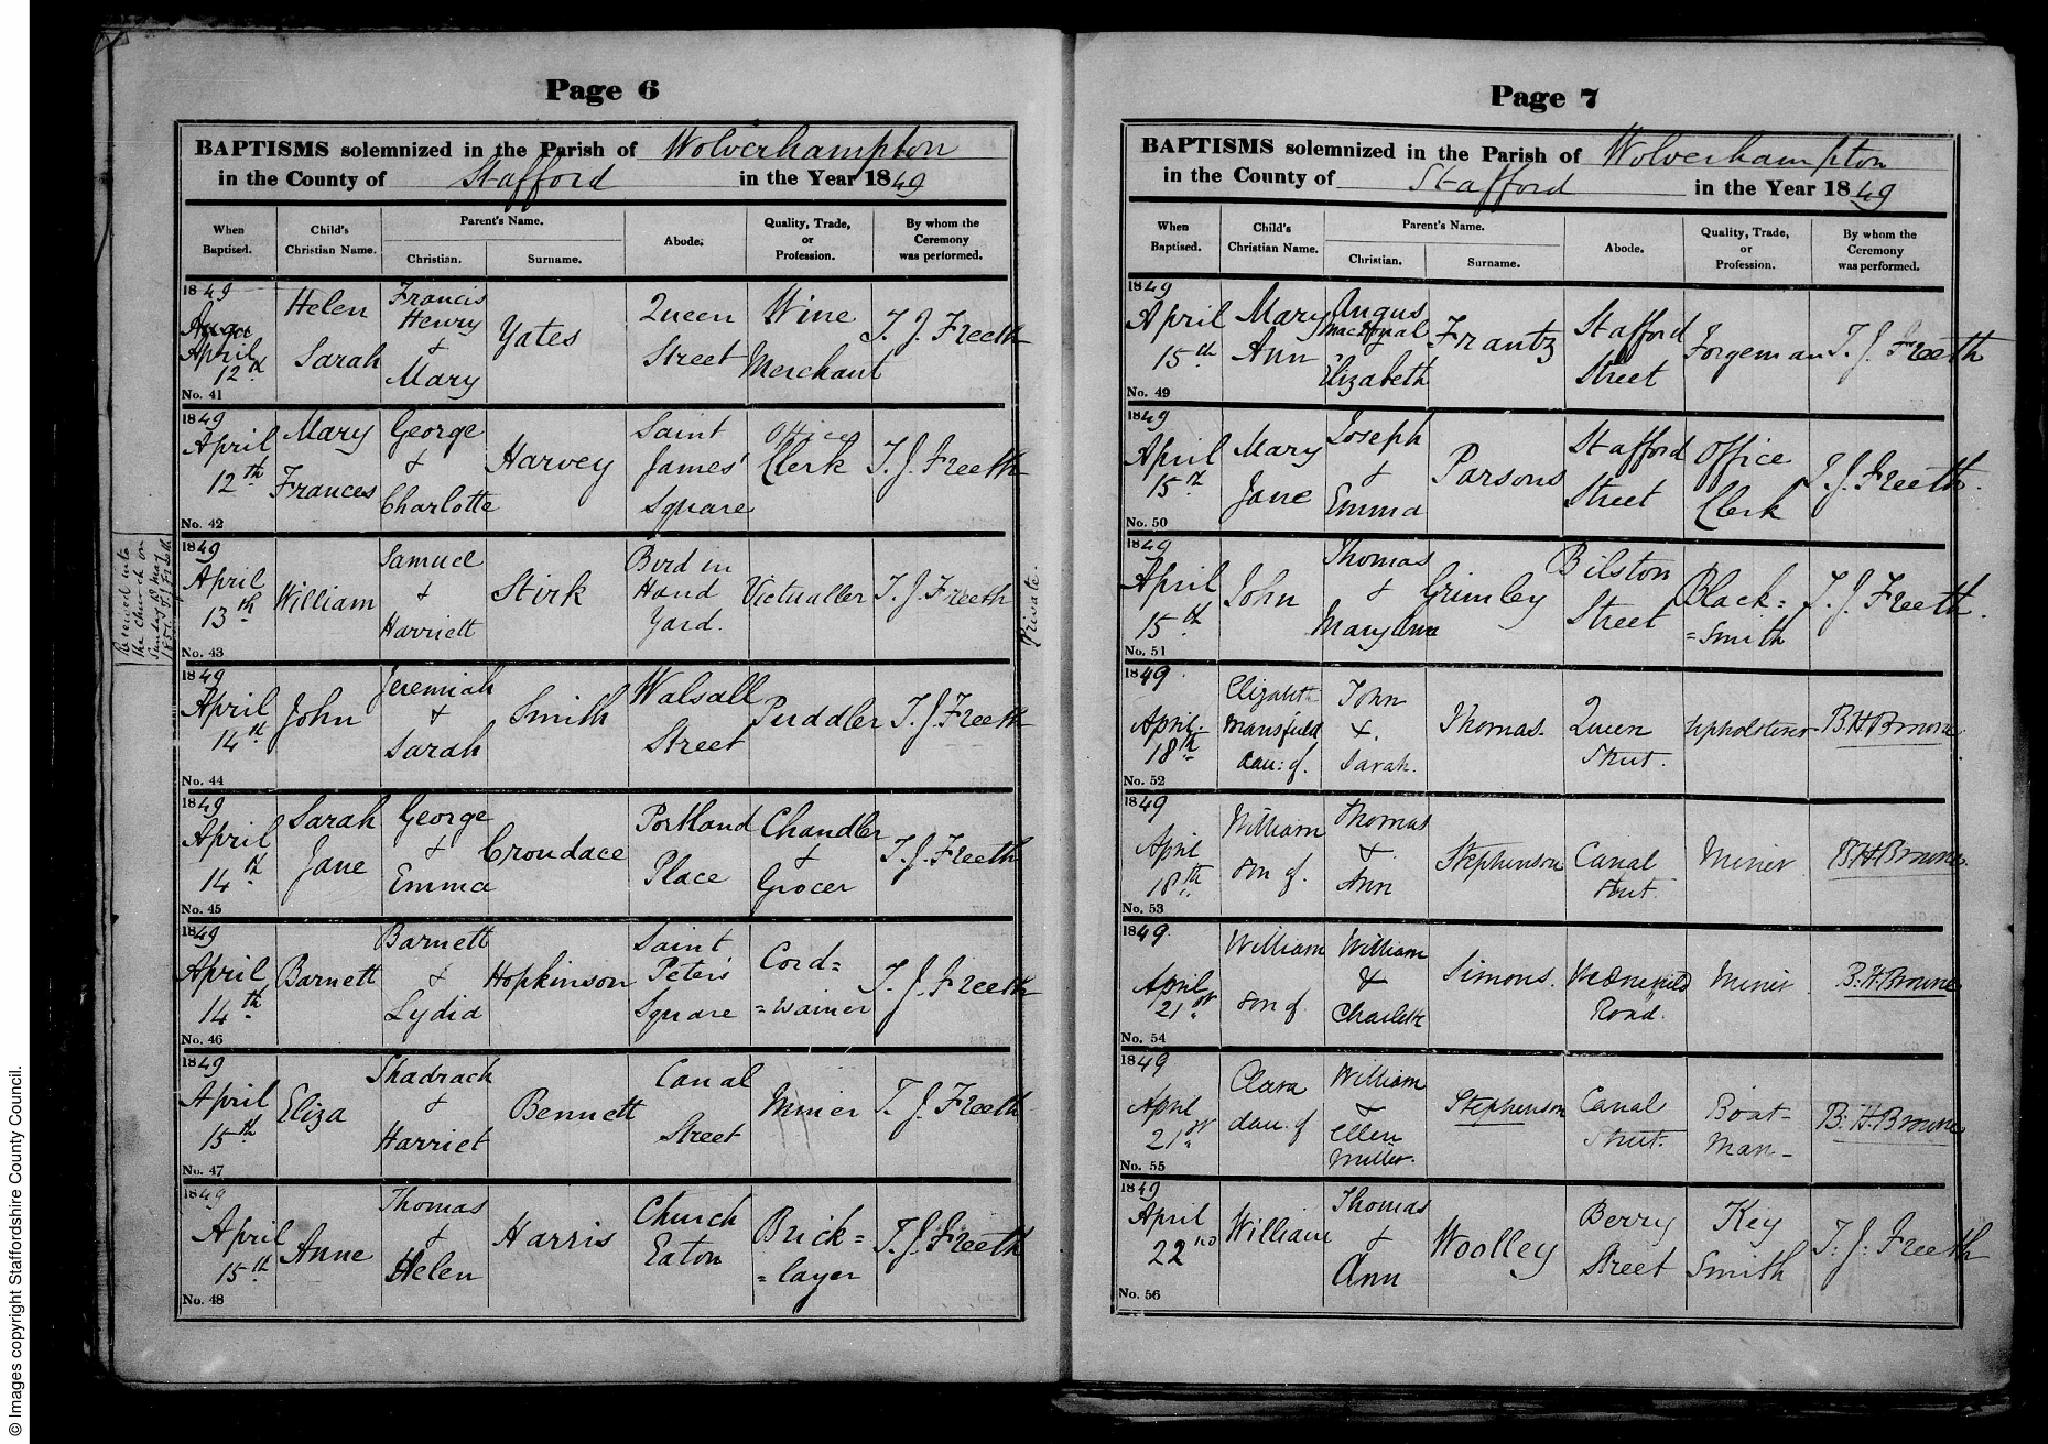 Page 6
BAPTISMS solemnized in the Parish of Wolverhampton
in the County of Stafford in the Year 1849
When Baptised. Child's Christian Name. Parent's Name. Christian. Surname. Abode. Quality, Trade, or Profession. By whom the Ceremony was performed.
1849 April 12th Helen Sarah Francis Henry & Mary Yates Queen Street Wine Merchant T. J. Freeth
No. 41
1849 April 12th Mary Frances George & Charlotte Harvey Saint James' Square Office Clerk T. J. Freeth
No. 42
Received into
the church on
Sunday May
1851. T. J. Freeth
1849 April 13th William Samuel & Harriett Stirk Bird in Hand Yard. Victualler T. J. Freeth
Private.
No. 43
1849 April 14th John Jeremiah & Sarah Smith Walsall Street Puddler T. J. Freeth
No. 44
1849 April 14th Sarah Jane George & Emma Croudace Portland Place Chandler & Grocer T. J. Freeth
No. 45
1849 April 14th Barnett Barnett & Lydia Hopkinson Saint Peter's Square Cord= =wainer T. J. Freeth
No. 46
1849 April 15th Eliza Shadrach & Harriet Bennett Canal Street Miner T. J. Freeth
No. 47
1849 April 15th Anne Thomas & Helen Harris Church Eaton Brick= =layer T. J. Freeth
No. 48
Page 7
BAPTISMS solemnized in the Parish of Wolverhampton
in the County of Stafford in the Year 1849
When Baptised. Child's Christian Name. Parent's Name. Christian. Surname. Abode. Quality, Trade, or Profession. By whom the Ceremony was performed.
1849 April 15th Mary Ann Angus & Elizabeth Frantz Stafford Street Forgeman T. J. Freeth
No. 49
1849 April 15th Mary Jane Joseph & Emma Parsons Stafford Street Office Clerk T. J. Freeth.
No. 50
1849 April 15th John Thomas & Mary Ann Grimley Bilston Street Black= =smith T. J. Freeth.
No. 51
1849 April 18th Elizabeth Mansfield dau: of. John &. Sarah. Thomas. Queen Street. Upholsterer B. H. Browne
No. 52
1849 April 18th William son of. Thomas & Ann Stephenson Canal Street. Miner B. H. Browne.
No. 53
1849. April 21st William son of William & Charlotte Simons. Road. Miner B. H. Browne
No. 54
1849 April 21st Clara dau: of William & Ellen Miller. Stephenson Canal Street. Boat- man- B. H. Browne
No. 55
1849 April 22nd William Thomas & Ann Woolley Berry Street Key Smith T. J. Freeth
No. 56
© Images copyright Staffordshire County Council.